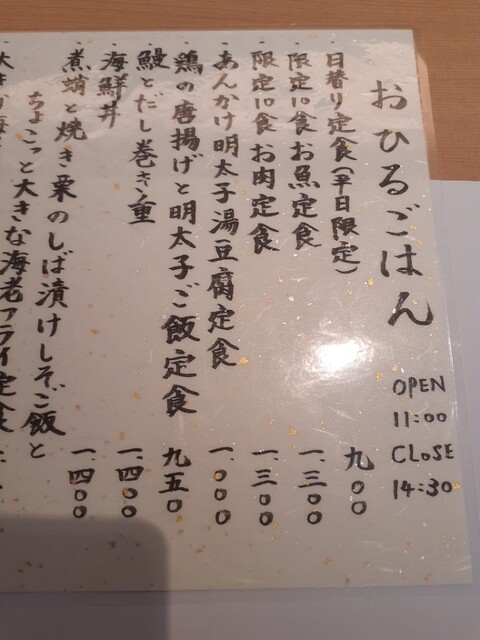 おひるごはん
OPEN
11:00
CLOSE
14:30
・日替り定食(平日限定) 九〇〇
・限定10食 お魚定食 一、三〇〇
・限定10食 お肉定食 一、三〇〇
・あんかけ明太子湯豆腐定食 一、〇〇〇
・鶏の唐揚げと明太子ご飯定食 九五〇
・鰻とだし巻き重 一、四〇〇
・海鮮丼 一、四〇〇
・煮蛸と焼き栗のしば漬けしそご飯と
ちょこっと大きな海老フライ定食